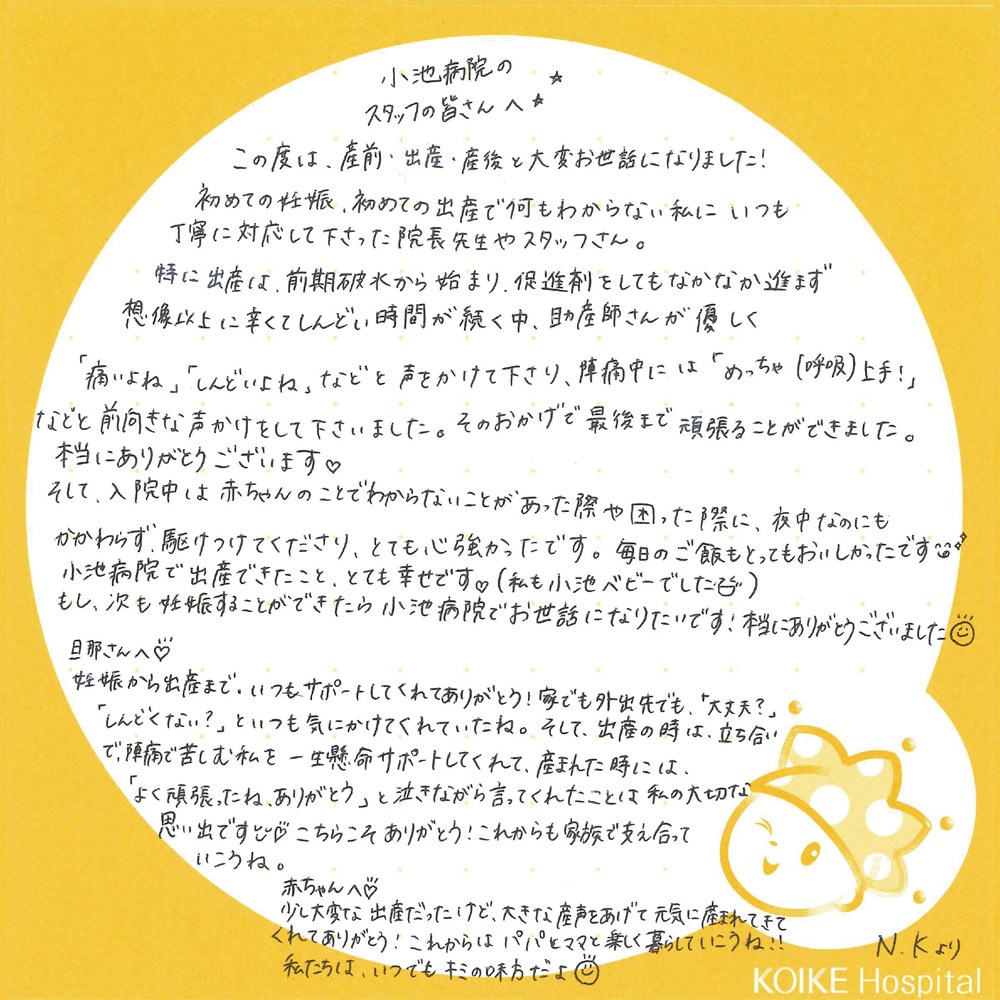 小池病院の
スタッフの皆さんへ☆
この度は、産前・出産・産後と大変お世話になりました!
初めての妊娠、初めての出産で何もわからない私に いつも
丁寧に対応して下さった院長先生やスタッフさん。
特に出産は、前期破水から始まり、促進剤をしてもなかなか進まず
想像以上に辛くてしんどい時間が続く中、助産師さんが優しく
「痛いよね」「しんどいよね」などと声をかけて下さり、陣痛中には「めっちゃ(呼吸)上手!」
などと前向きな声かけをして下さいました。そのおかげで最後まで頑張ることができました。
本当にありがとうございます♡
そして、入院中は赤ちゃんのことでわからないことがあった際や困った際に、夜中なのにも
かかわらず、駆けつけてくださり、とても心強かったです。毎日のご飯もとってもおいしかったです
小池病院で出産できたこと、とても幸せです♡(私も小池ベビーでした)
もし、次も妊娠することができたら小池病院でお世話になりたいです!本当にありがとうございました
旦那さんへ♡
妊娠から出産まで、いつもサポートしてくれてありがとう!家でも外出先でも、「大丈夫?」
「しんどくない?」といつも気にかけてくれていたね。そして、出産の時は、立ち合い
で、陣痛で苦しむ私を一生懸命サポートしてくれて、産まれた時には、
「よく頑張ったね、ありがとう」と泣きながら言ってくれたことは私の大切な
思い出です♡こちらこそありがとう!これからも家族で支え合って
いこうね。
赤ちゃんへ♡
少し大変な出産だったけど、大きな産声をあげて元気に産まれてきて
くれてありがとう!これからはパパとママと楽しく暮らしていこうね!!
私たちは、いつでもキミの味方だよ
N.Kより
KOIKE Hospital